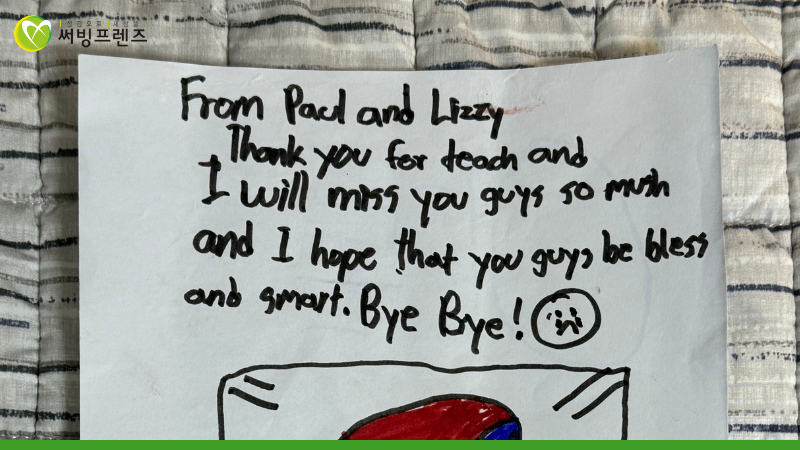 써빙프렌즈
From Paul and Lizzy
Thank you for teach and
I will miss you guys so mush
and I hope that you guys be bless
and smart. Bye Bye!